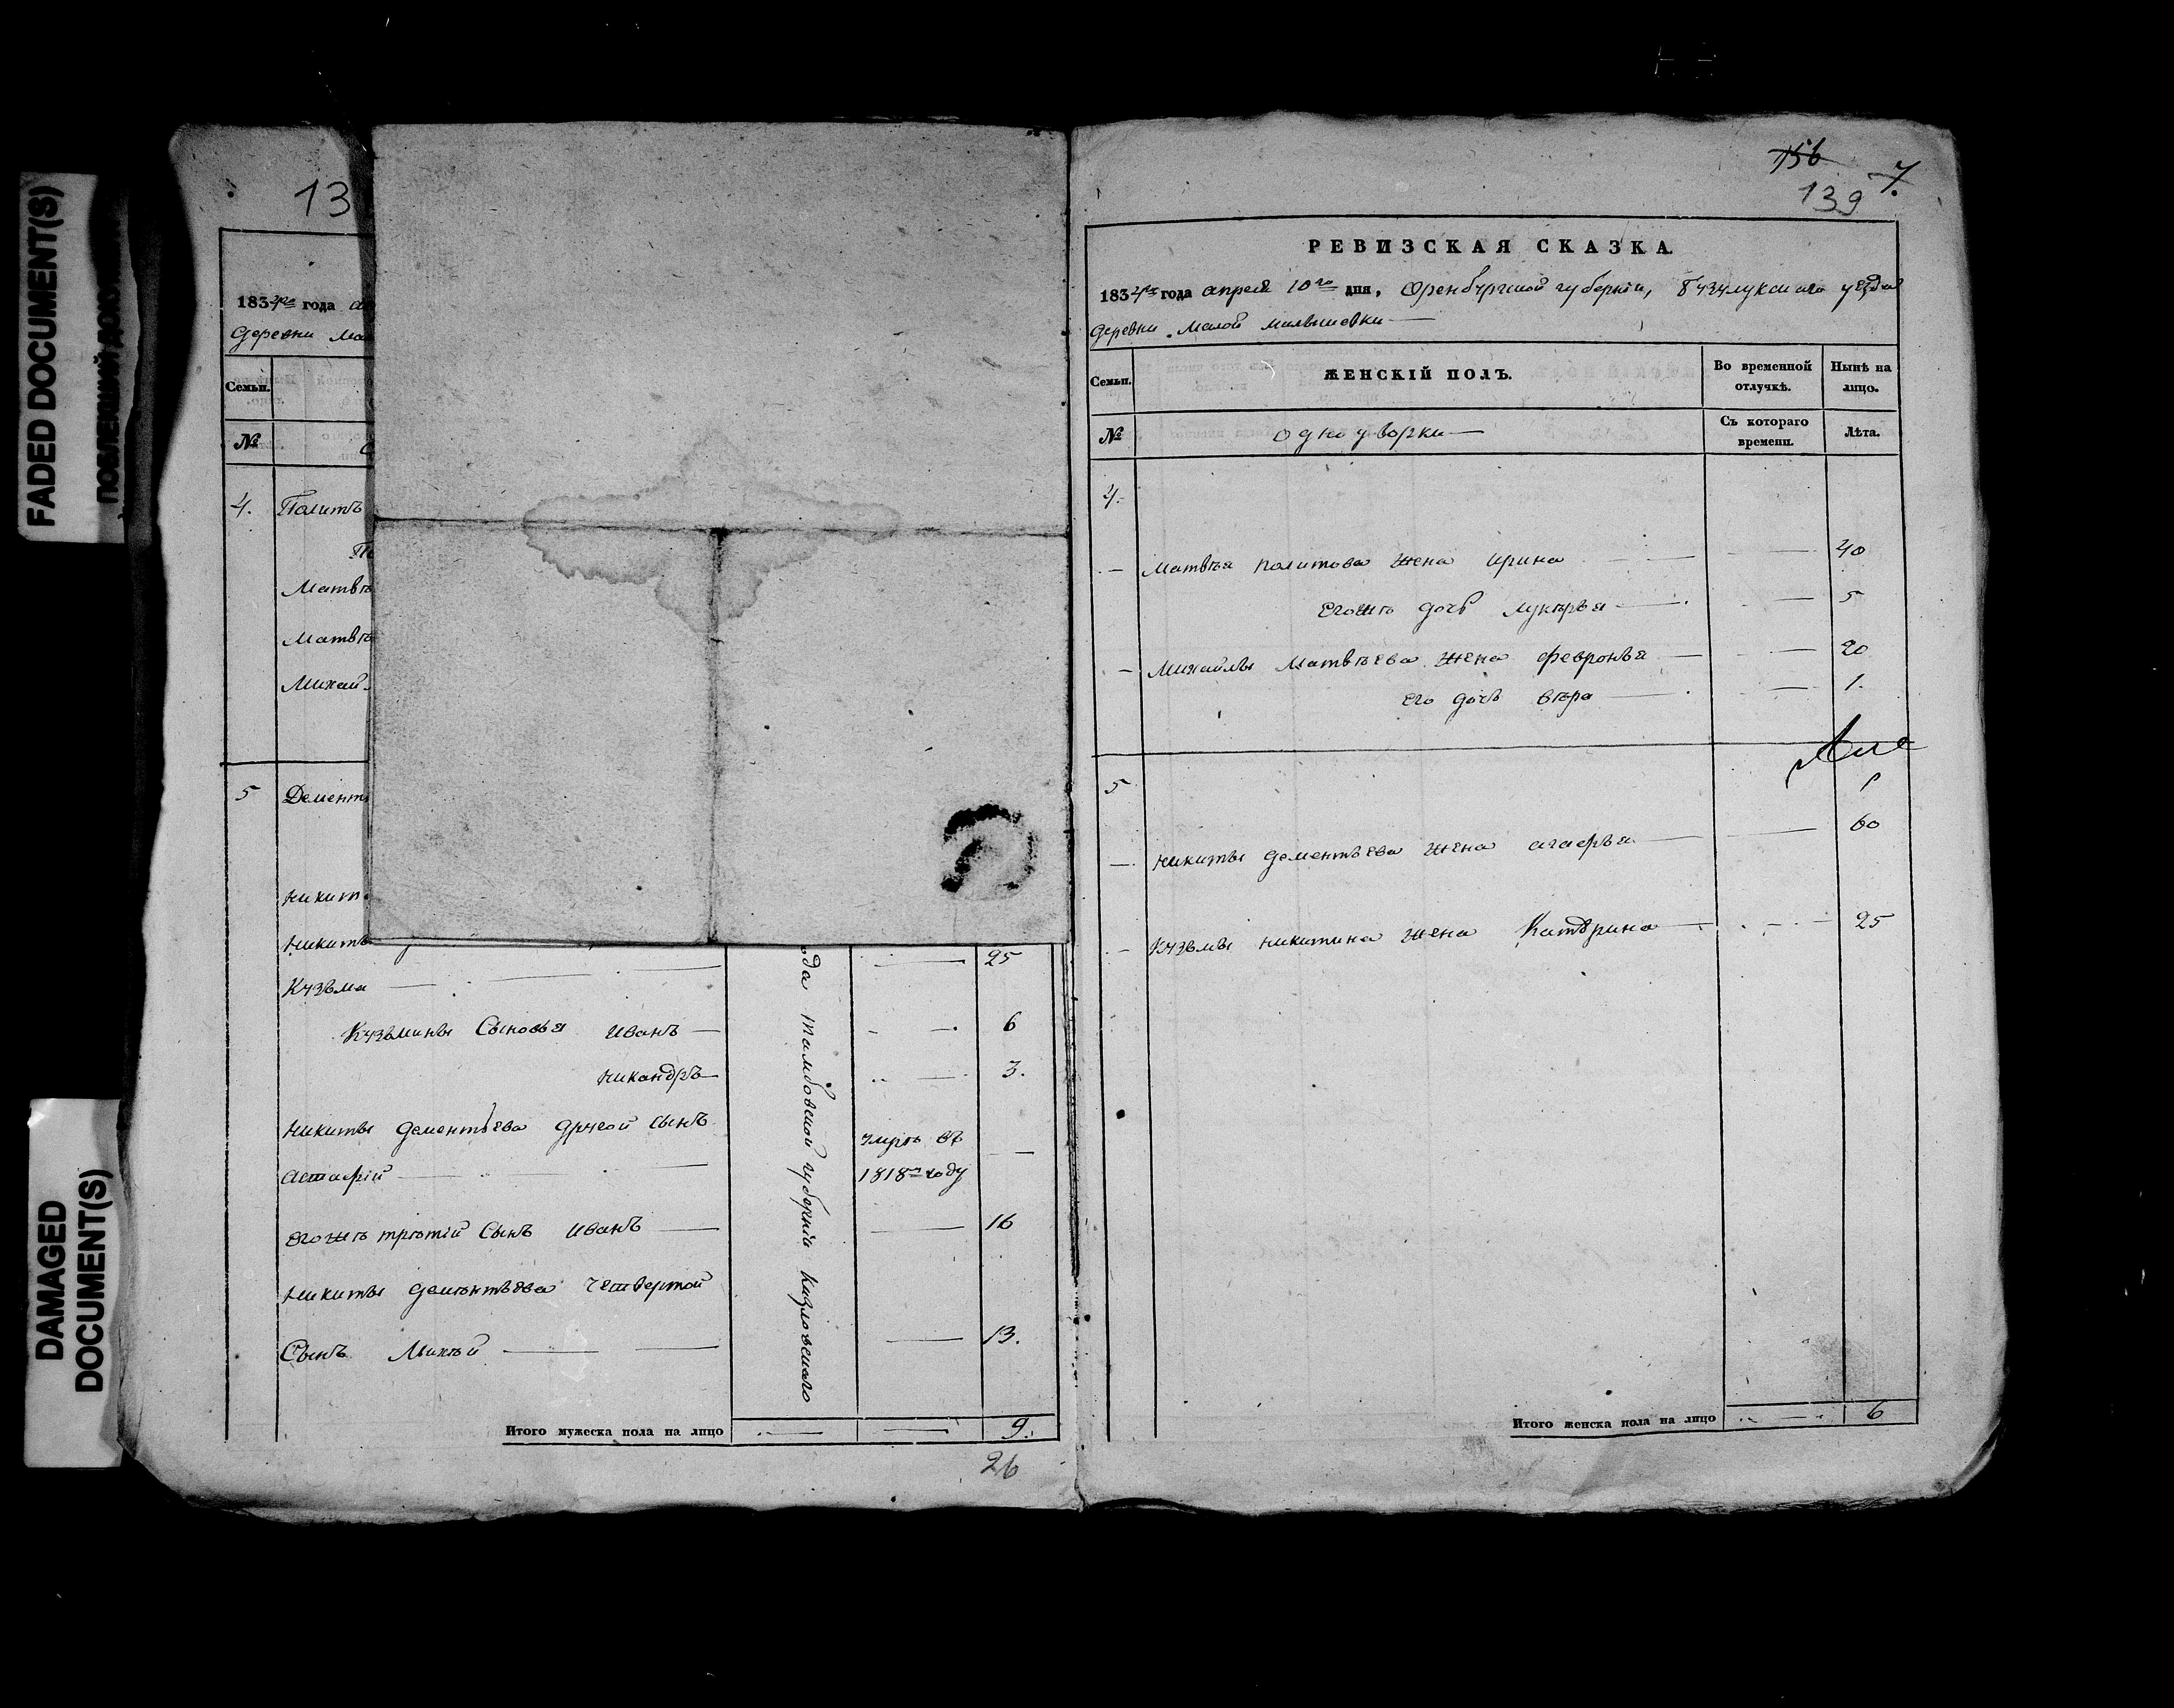 FADED DOCUMENT(S)
DAMAGED
DOCUMENT(S)
13
1834го года
деревни
Семьи.
№
4. Политъ
Матвѣ
Матвѣ
Михай
5 Дементь
Никит
Никиты
Кузьма 25
Кузьмины Сыновья Иванъ 6
Никандръ 3.
Никиты дементьева другой сынъ умре въ
Астафій 1818м году
Егоже третій Сынъ Иванъ 16
Никиты дементьева четвертой
Сынъ Михѣй 13.
ода тамбовской губерніи Козловскаго
Итого мужеска пола на лицо 9.
26
156 7.
139
РЕВИЗСКАЯ СКАЗКА
1834го года апреля 10го дня, Оренбургской губерніи, Бузулукскаго уезда
деревни Малой Малышевки
Семьи. ЖЕНСКІЙ ПОЛЪ. Во временной отлучкѣ. Нынѣ на лицо.
№ однодворки Съ котораго времени. Лѣта.
4.
Матвѣя Политова жена Ирина 40
Егоже дочь Лукерья 5
Михайлы Матвѣева жена Февронья 20
Его дочь Вѣра 1.
5
Никиты дементьева жена агафья 60
Кузьмы Никитина жена Катерина 25
Итого женска пола на лицо 6